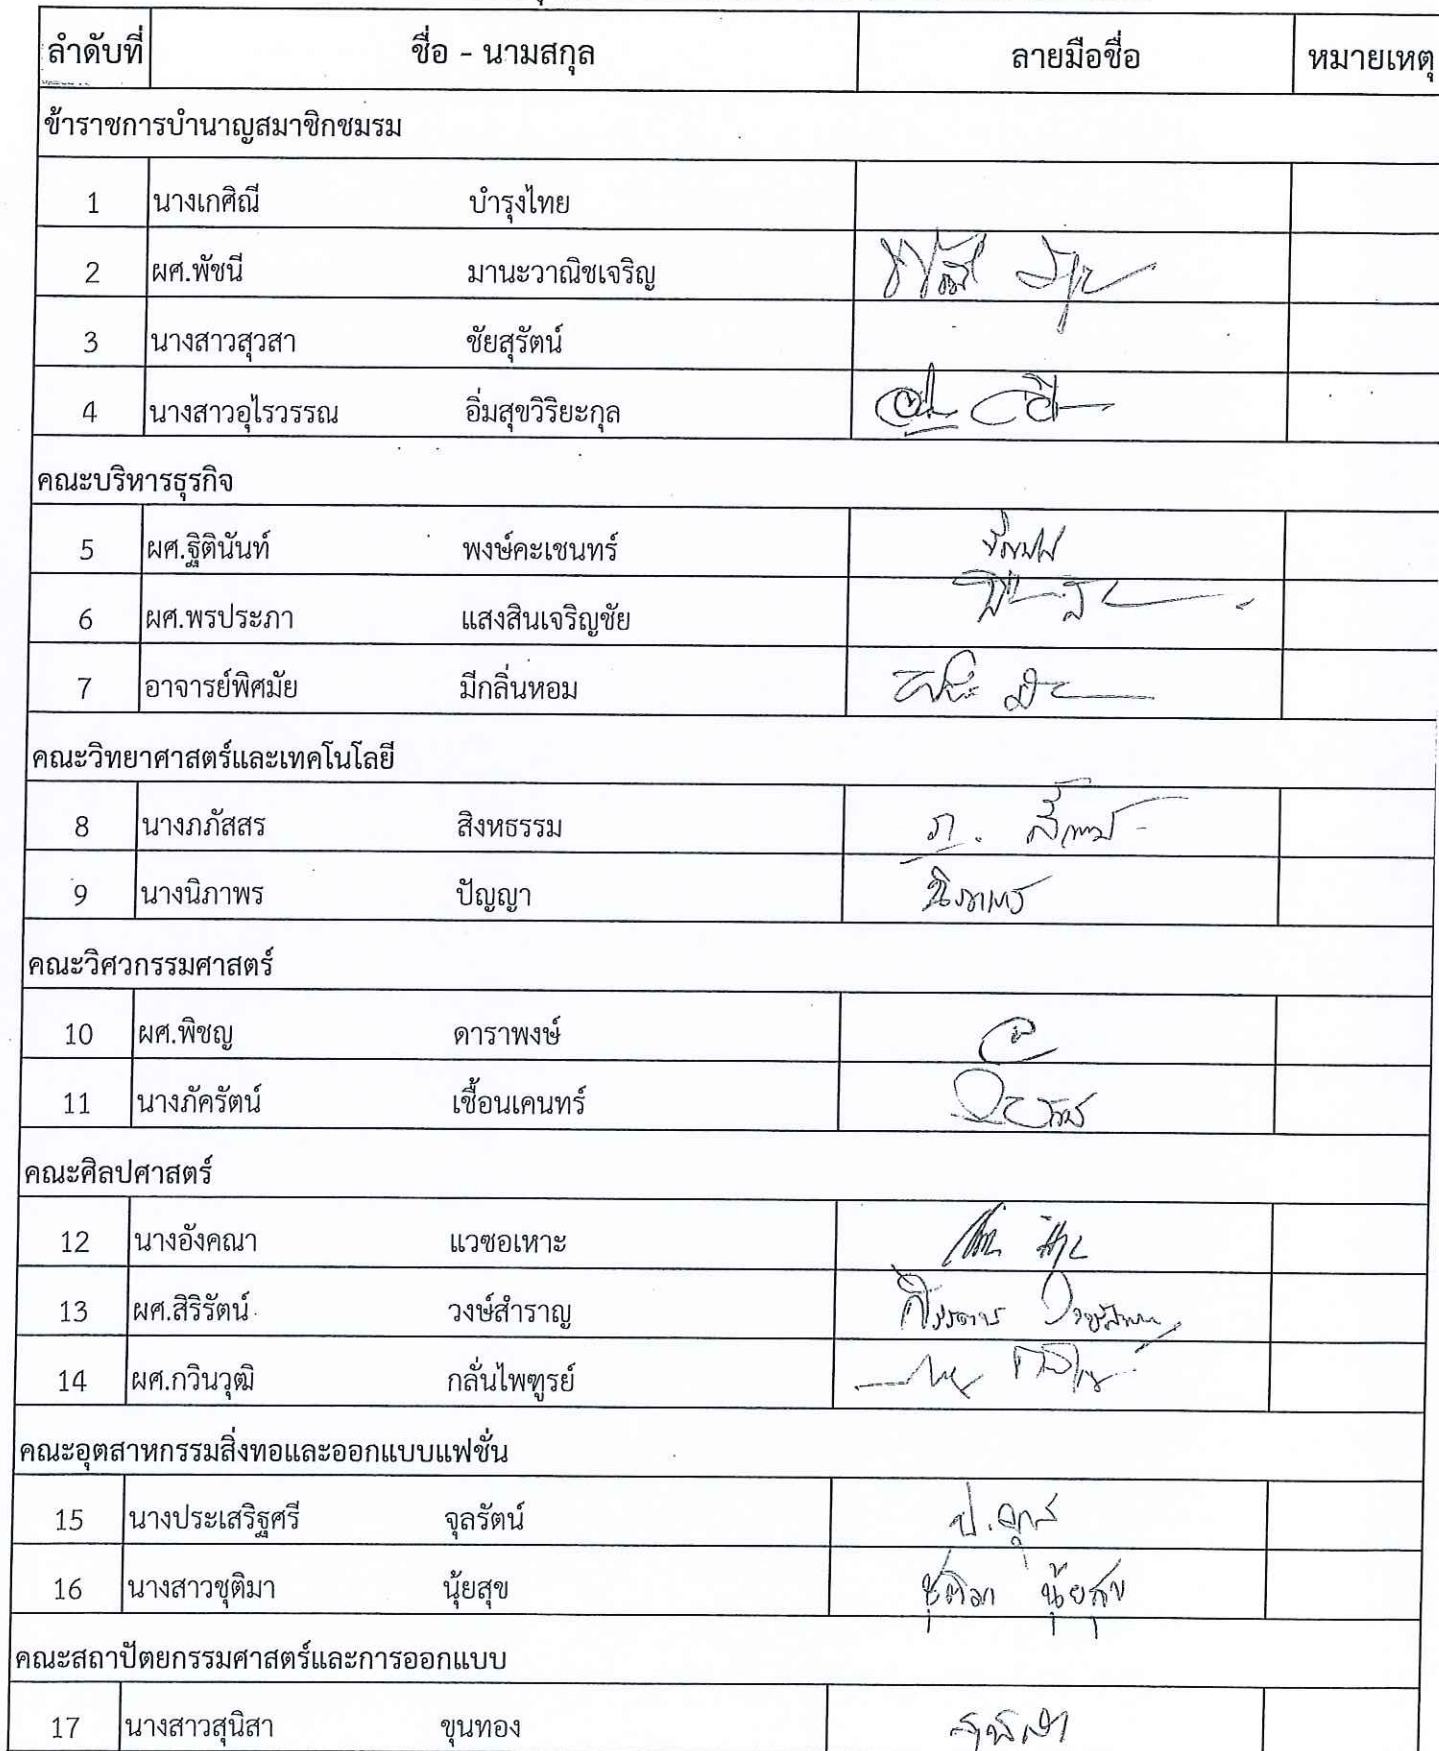 ลำดับที่ ชื่อ - นามสกุล ลายมือชื่อ หมายเหตุ
ข้าราชการบำนาญสมาชิกชมรม
1 นางเกศิณี บำรุงไทย
2 ผศ.พัชนี มานะวาณิชเจริญ
3 นางสาวสุวสา ชัยสุรัตน์
4 นางสาวอุไรวรรณ อิ่มสุขวิริยะกุล
คณะบริหารธุรกิจ
5 ผศ.ฐิตินันท์ พงษ์คะเชนทร์
6 ผศ.พรประภา แสงสินเจริญชัย
7 อาจารย์พิศมัย มีกลิ่นหอม
คณะวิทยาศาสตร์และเทคโนโลยี
8 นางภภัสสร สิงหธรรม
9 นางนิภาพร ปัญญา นิภาพร
คณะวิศวกรรมศาสตร์
10 ผศ.พิชญ ดาราพงษ์
11 นางภัครัตน์ เชื้อนเคนทร์
คณะศิลปศาสตร์
12 นางอังคณา แวซอเหาะ
13 ผศ.สิริรัตน์ วงษ์สำราญ
14 ผศ.กวินวุฒิ กลั่นไพฑูรย์
คณะอุตสาหกรรมสิ่งทอและออกแบบแฟชั่น
15 นางประเสริฐศรี จุลรัตน์
16 นางสาวชุติมา นุ้ยสุข ชุติมา นุ้ยสุข
คณะสถาปัตยกรรมศาสตร์และการออกแบบ
17 นางสาวสุนิสา ขุนทอง สุนิสา